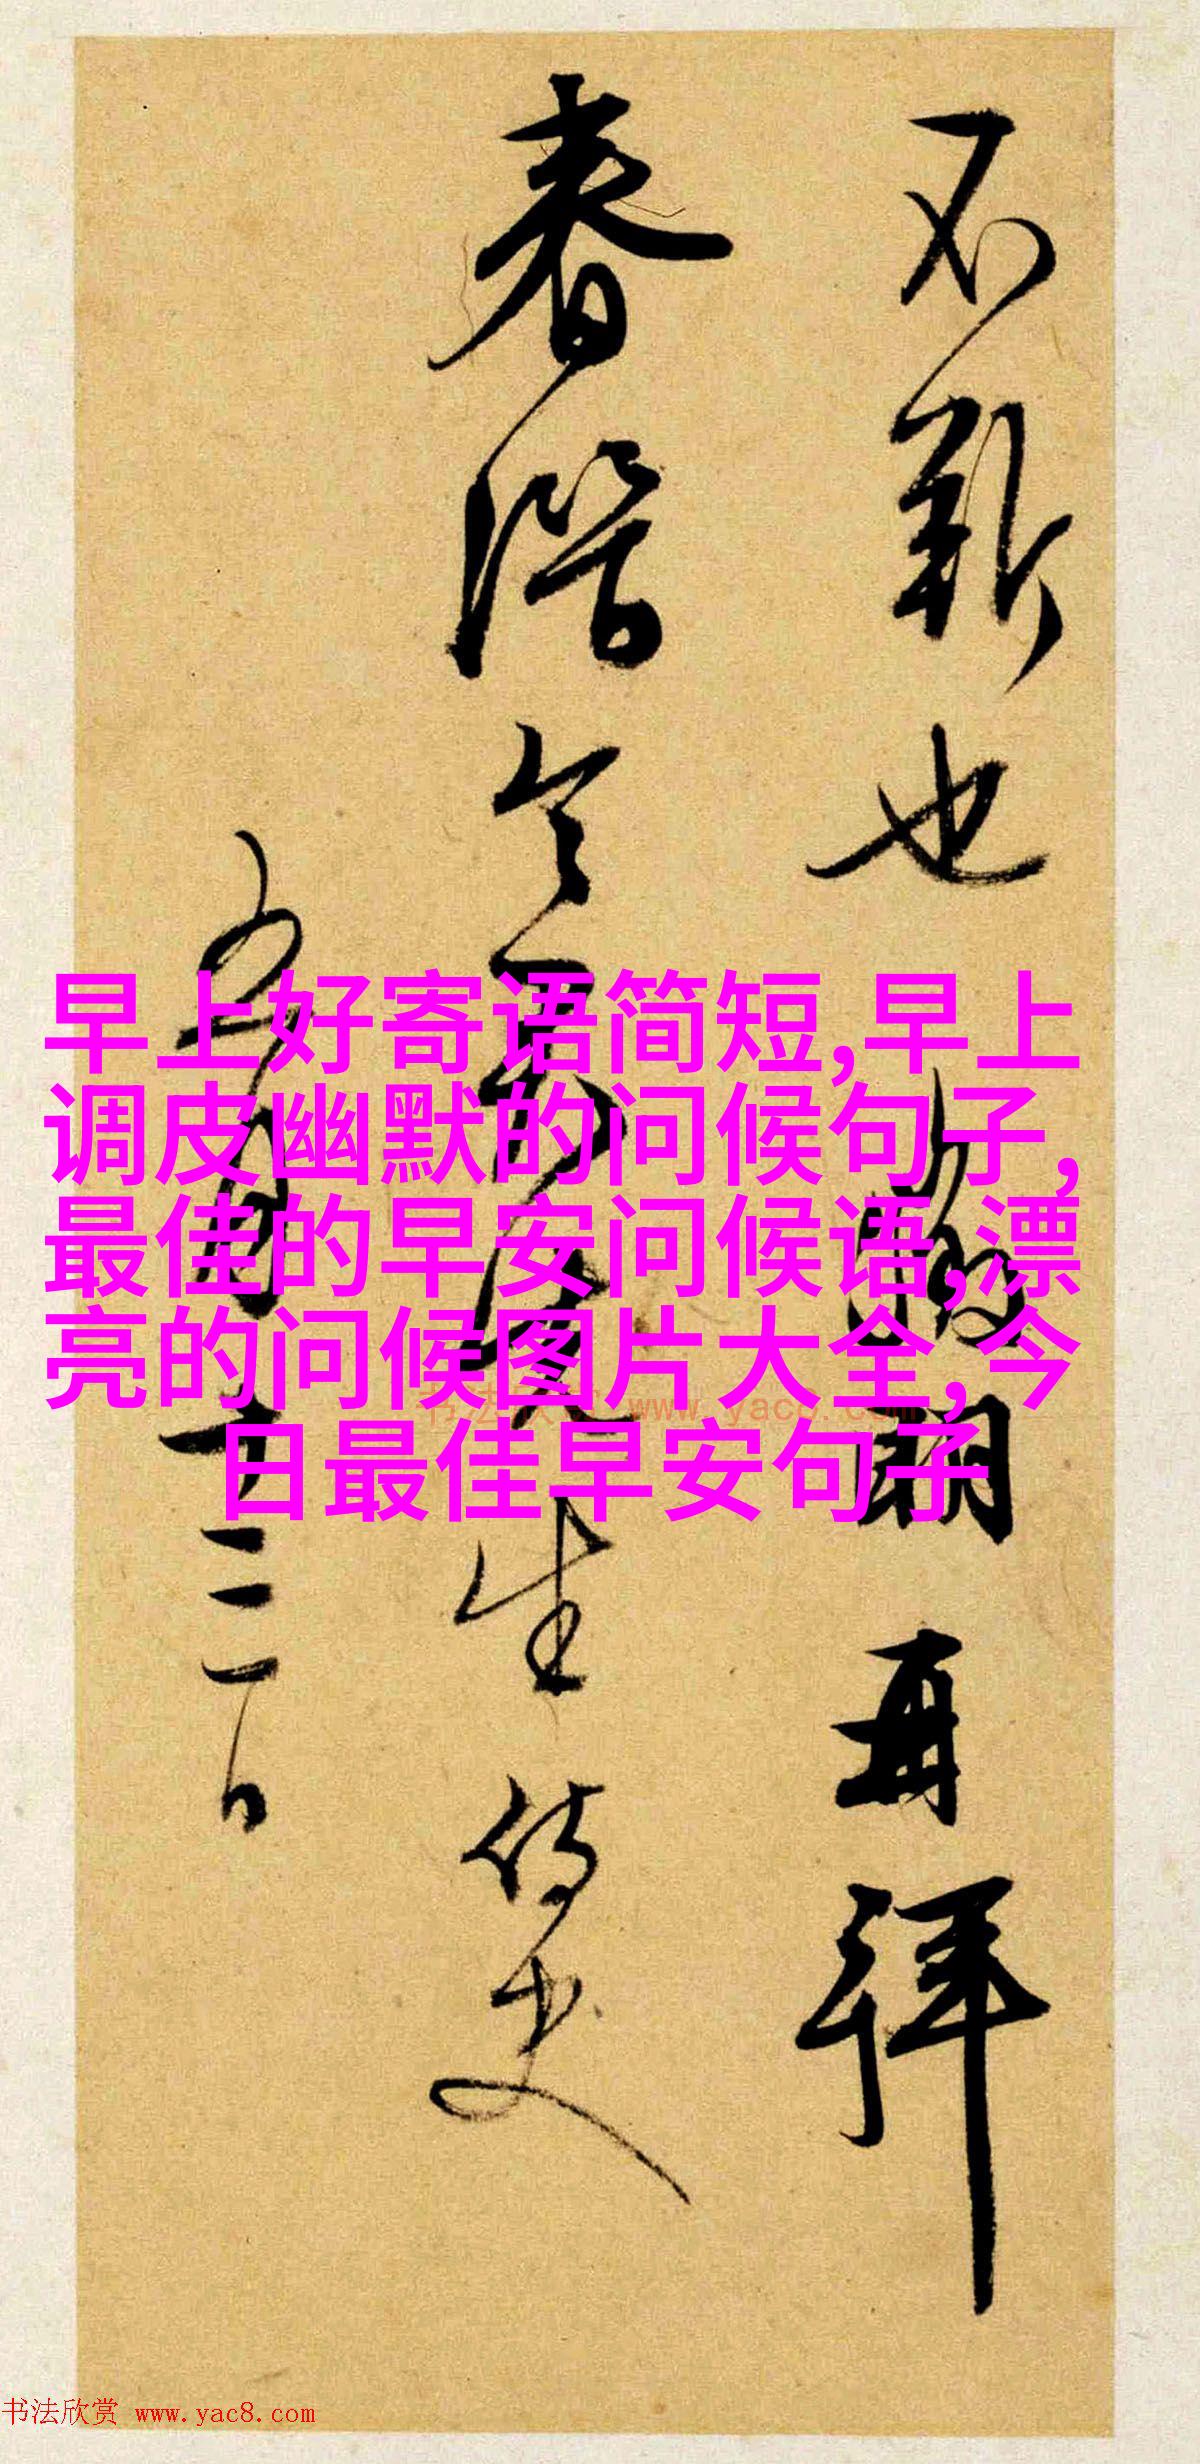 不斬也 徵明再拜
春潛 先生侍史
五月十三日
早上好寄语简短,早上
调皮幽默的问候句子,
最佳的早安问候语,漂
亮的问候图片大全,今
日最佳早安句子
书法欣赏 www.yac8.com
书法欣赏 www.yac8.com